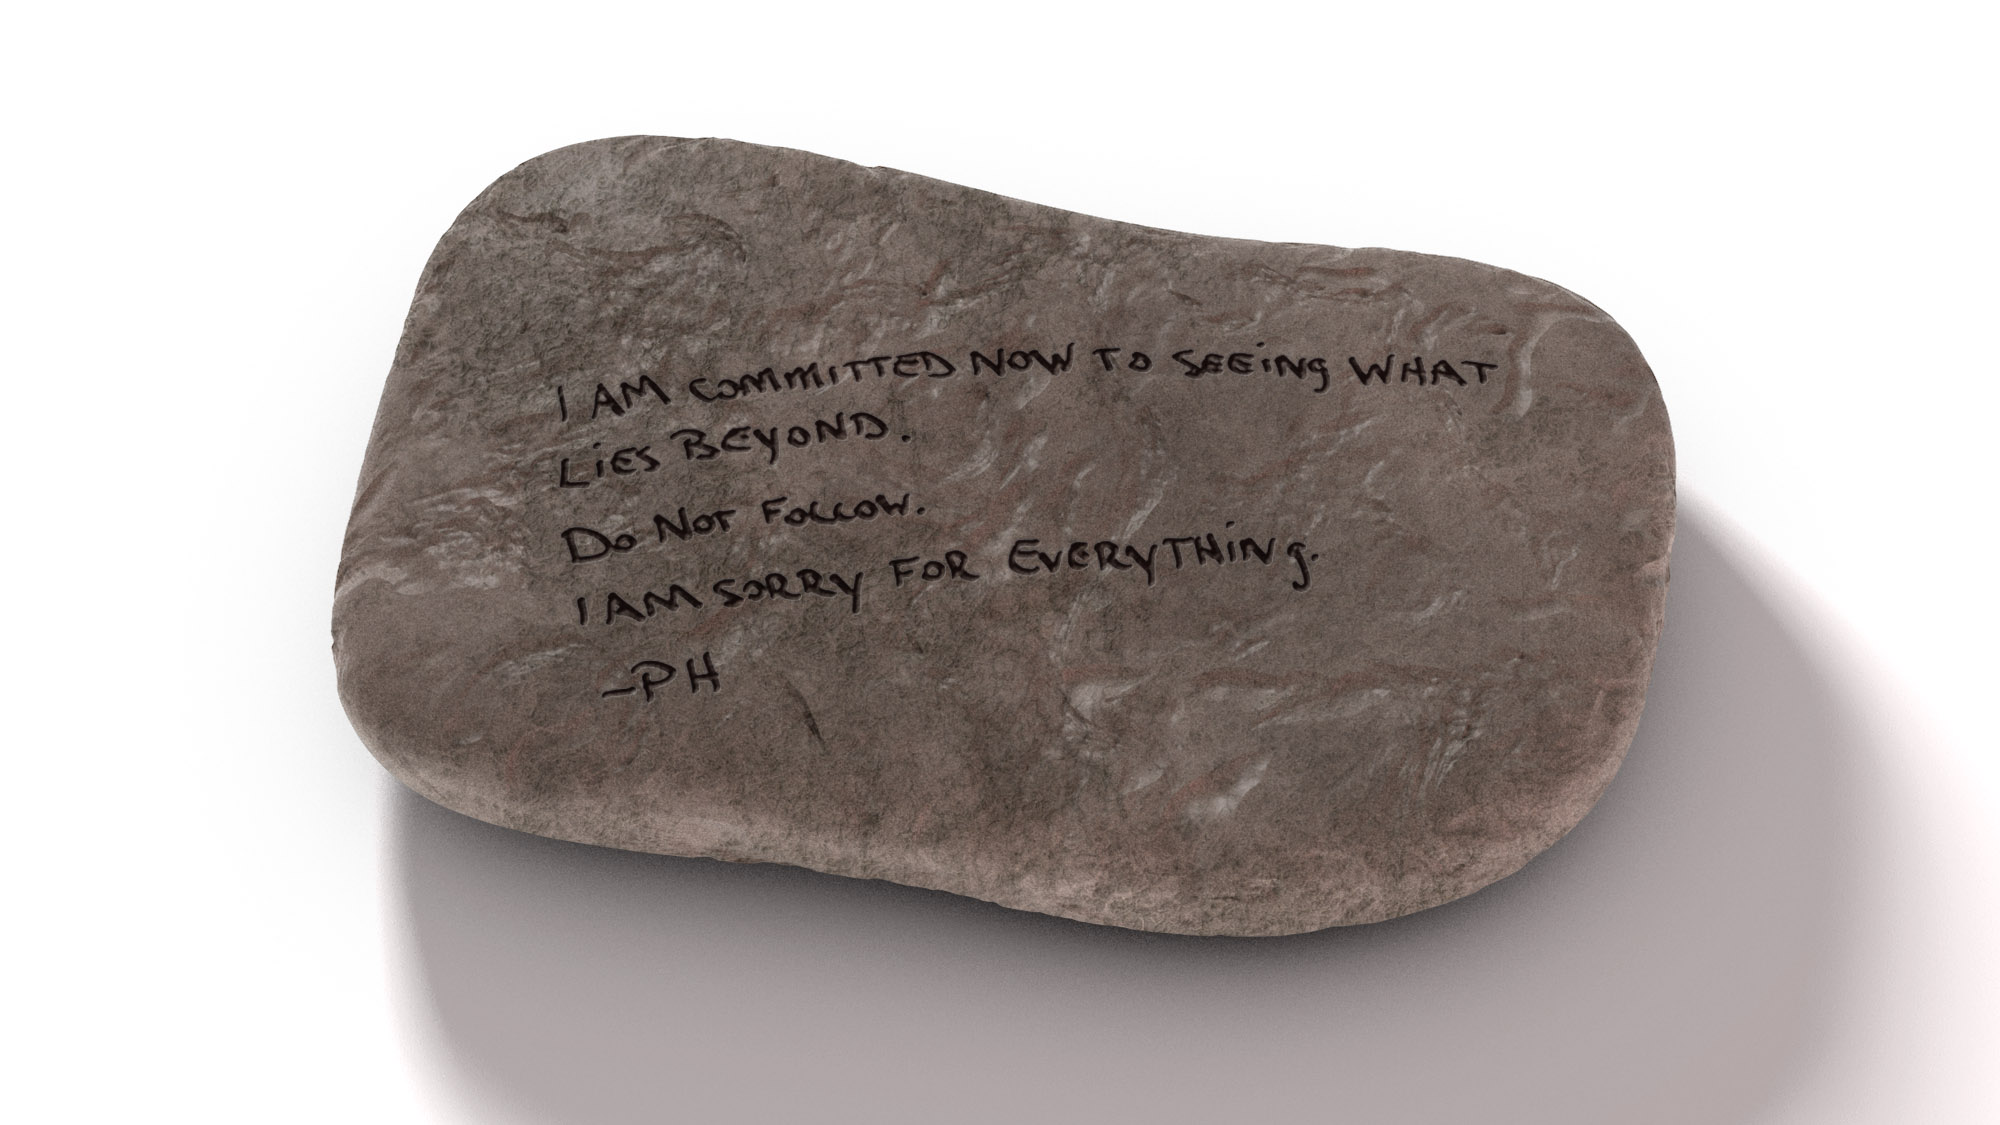 I AM COMMITTED NOW TO SEEING WHAT
LIES BEYOND.
DO NOT FOLLOW.
I AM SORRY FOR EVERYTHING.
-PH